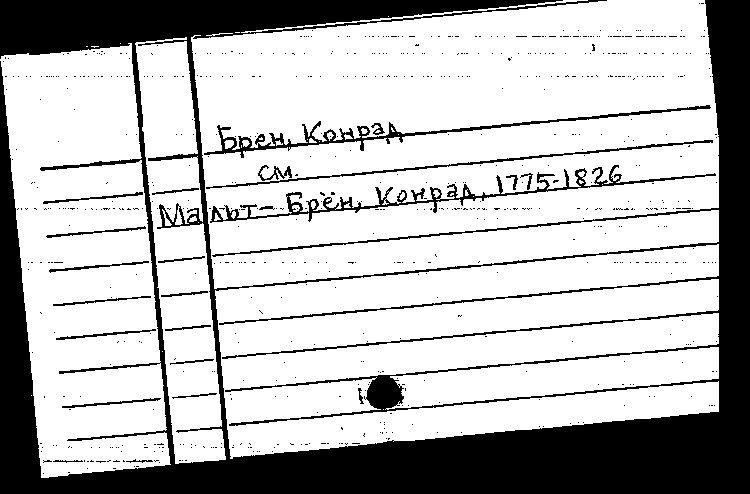 Брен, Конрад
см.
Мальт-Брён, Конрад, 1775-1826